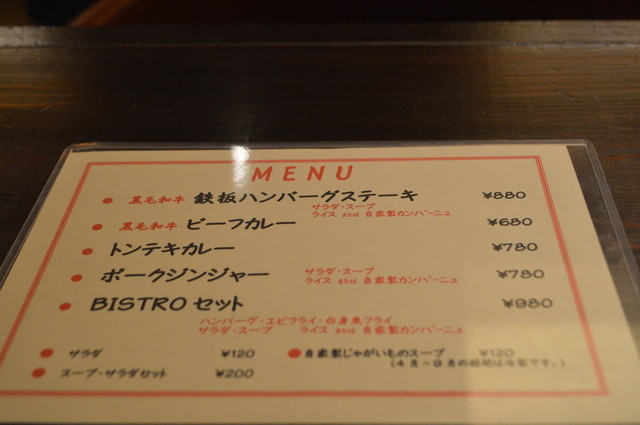 MENU
黒毛和牛 鉄板ハンバーグステーキ ¥880
サラダ・スープ
ライス または 自家製カンパーニュ
黒毛和牛 ビーフカレー ¥680
トンテキカレー ¥780
ポークジンジャー サラダ・スープ ¥780
ライス または 自家製カンパーニュ
BISTRO セット ¥980
ハンバーグ・エビフライ・白身魚フライ
サラダ・スープ ライス または 自家製カンパーニュ
サラダ ¥120 自家製じゃがいものスープ ¥120
(4月〜9月の期間は冷製です。)
スープ・サラダセット ¥200